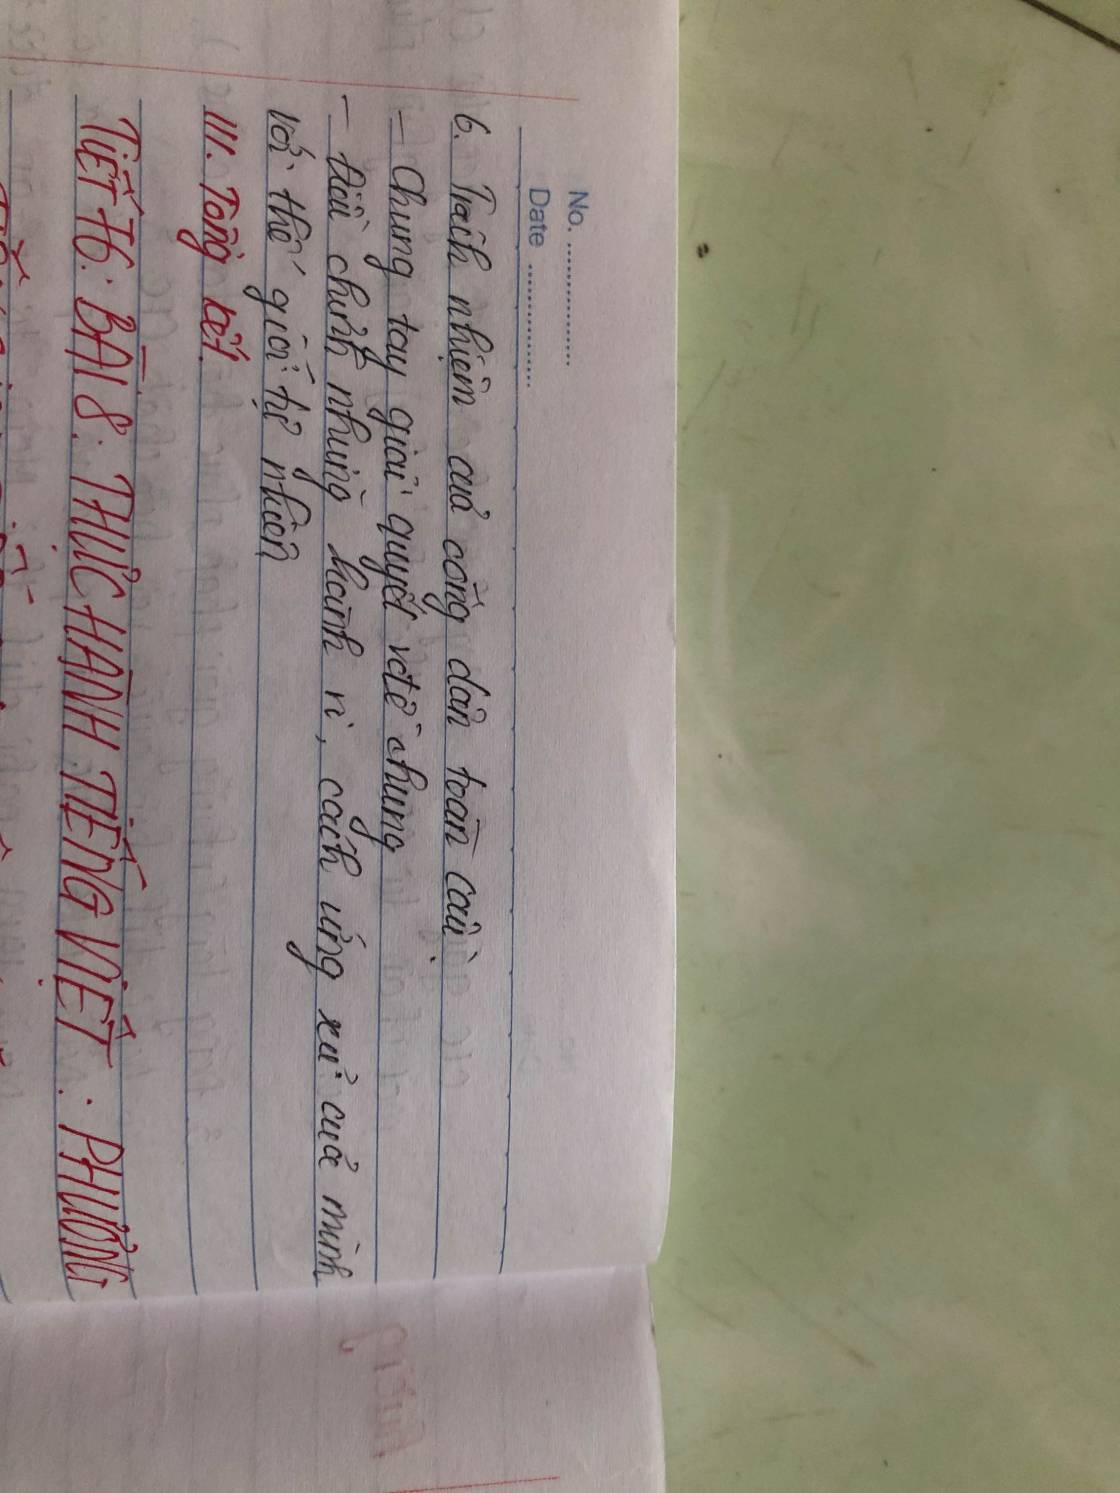 No. ................
Date ................
6. Trách nhiệm của công dân toàn cầu
- Chung tay giải quyết vđề chung
- Điều chỉnh những hành vi, cách ứng xử của mình
với thế giới tự nhiên
III. Tổng kết
TIẾT 76: BÀI 8: THỰC HÀNH TIẾNG VIỆT: PHƯƠNG